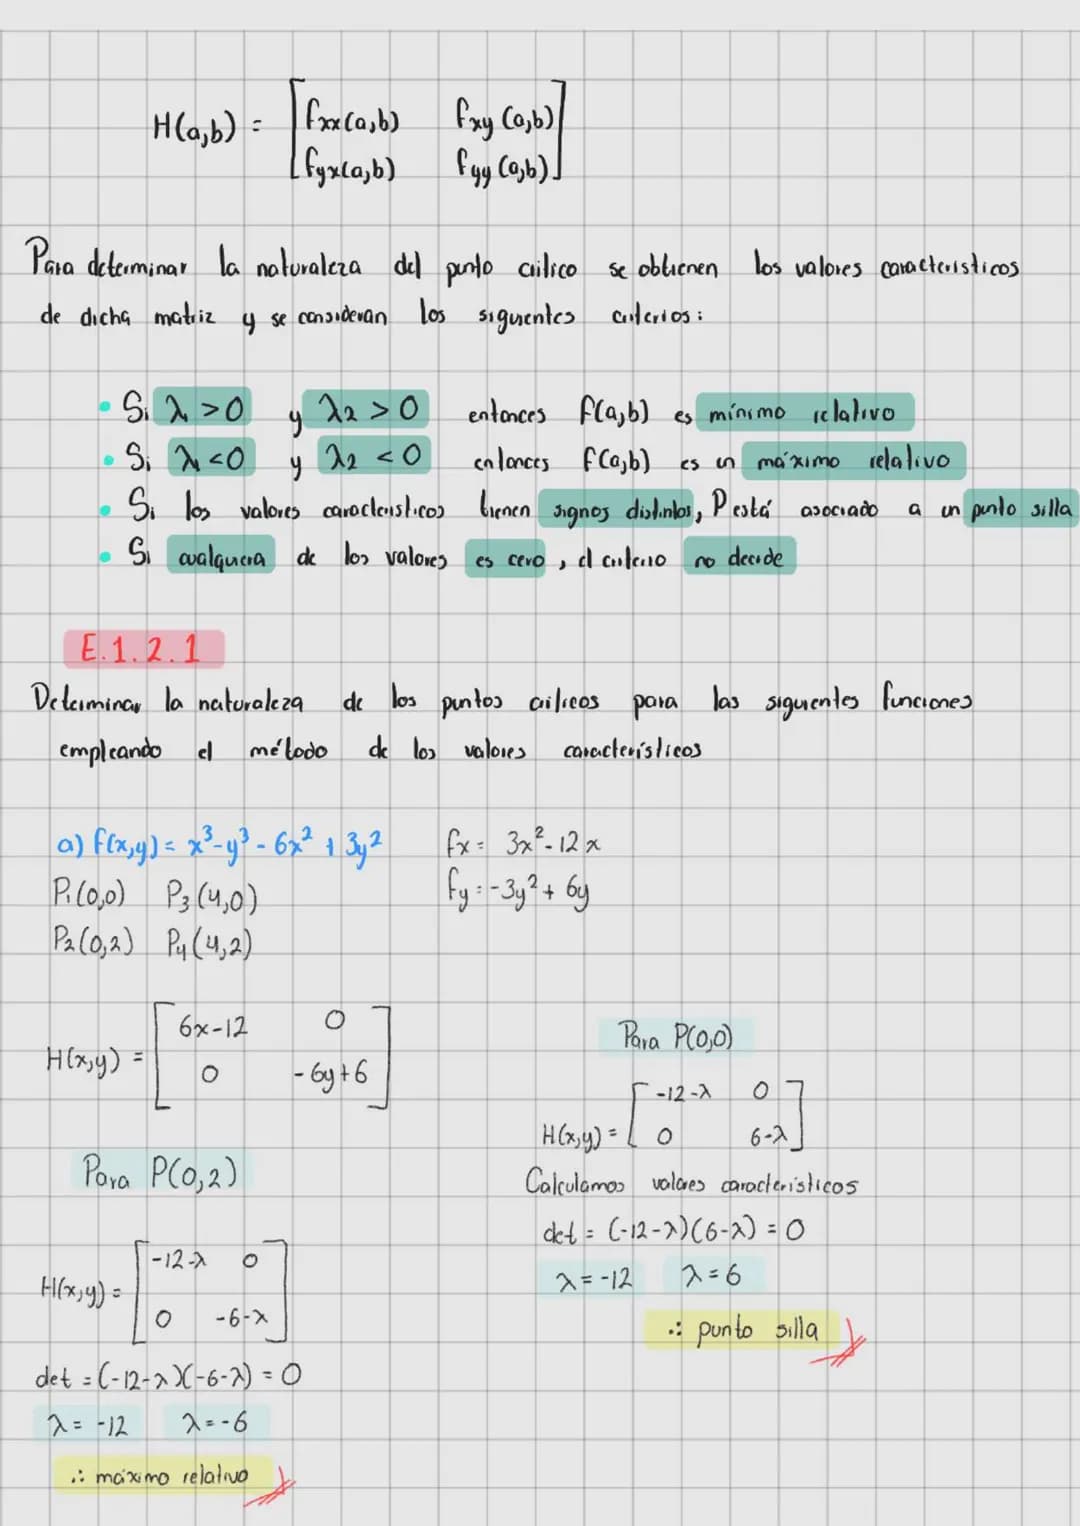 H(a,b) = [ fxx(a,b) fxy(a,b)
fyx(a,b) fyy(a,b) ]
Para determinar la naturaleza del punto crítico se obtienen los valores característicos
de dicha matriz y se consideran los siguientes criterios:
• Si λ₁ > 0 y λ₂ > 0 entonces f(a,b) es mínimo relativo
• Si λ₁ < 0 y λ₂ < 0 entonces f(a,b) es un máximo relativo
• Si los valores característicos tienen signos distintos, P está asociado a un punto silla
• Si cualquiera de los valores es cero, el criterio no decide
E.1.2.1
Determinar la naturaleza de los puntos críticos para las siguientes funciones
empleando el método de los valores característicos
a) f(x,y) = x³ - y³ - 6x² + 3y²
P₁(0,0) P₃(4,0)
P₂(0,2) P₄(4,2)
fx = 3x² - 12x
fy = -3y² + 6y
H(x,y) = [ 6x-12 0
0 -6y+6 ]
Para P(0,0)
H(x,y) = [ -12-λ 0
0 6-λ ]
Calculamos valores característicos
det = (-12-λ)(6-λ) = 0
λ = -12 λ = 6
∴ punto silla
Para P(0,2)
H(x,y) = [ -12-λ 0
0 -6-λ ]
det = (-12-λ)(-6-λ) = 0
λ = -12 λ = -6
∴ máximo relativo